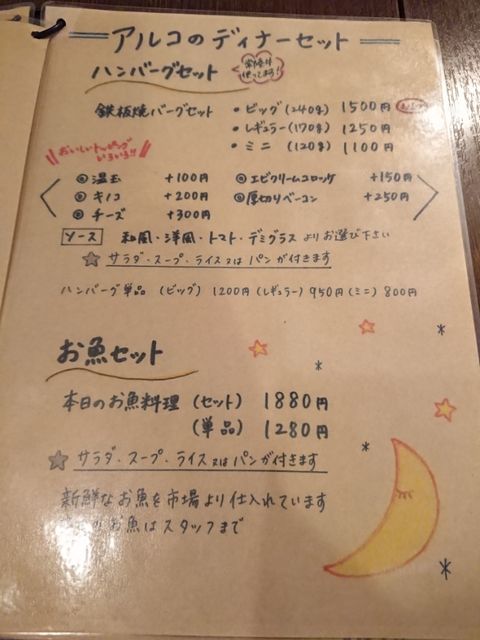 アルコのディナーセット
ハンバーグセット
常陸牛
使ってます!
鉄板焼バーグセット ・ビッグ(240g) 1500円
・レギュラー(170g) 1250円
・ミニ (120g) 1100円
おいしいトッピング
いろいろ!!
◎温玉 +100円 ◎エビクリームコロッケ +150円
◎キノコ +200円 ◎厚切りベーコン +250円
◎チーズ +300円
ソース 和風・洋風・トマト・デミグラスよりお選び下さい
☆サラダ・スープ・ライス又はパンが付きます
ハンバーグ単品 (ビッグ) 1200円 (レギュラー) 950円 (ミニ) 800円
お魚セット
本日のお魚料理 (セット) 1880円
(単品) 1280円
☆サラダ・スープ・ライス又はパンが付きます
新鮮なお魚を市場より仕入れています
お魚はスタッフまで